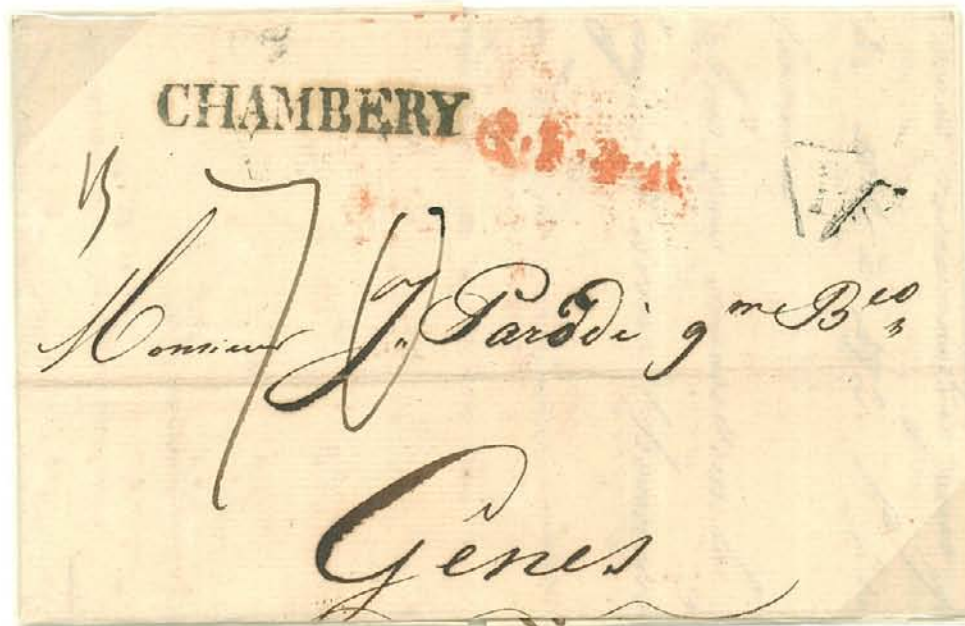 CHAMBERY
70
Monsieur J. Parodi qm Beo
Gênes